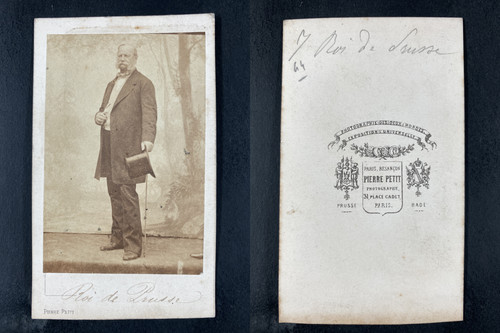 Roi de Prusse
PIERRE PETIT
7 Roi de Prusse
64
PHOTOGRAPHIE DES DEUX MONDES
EXPOSITION UNIVERSELLE
PARIS, BESANÇON
PIERRE PETIT
PHOTOGRAPHE,
31, PLACE CADET
PARIS.
PRUSSE
BADE